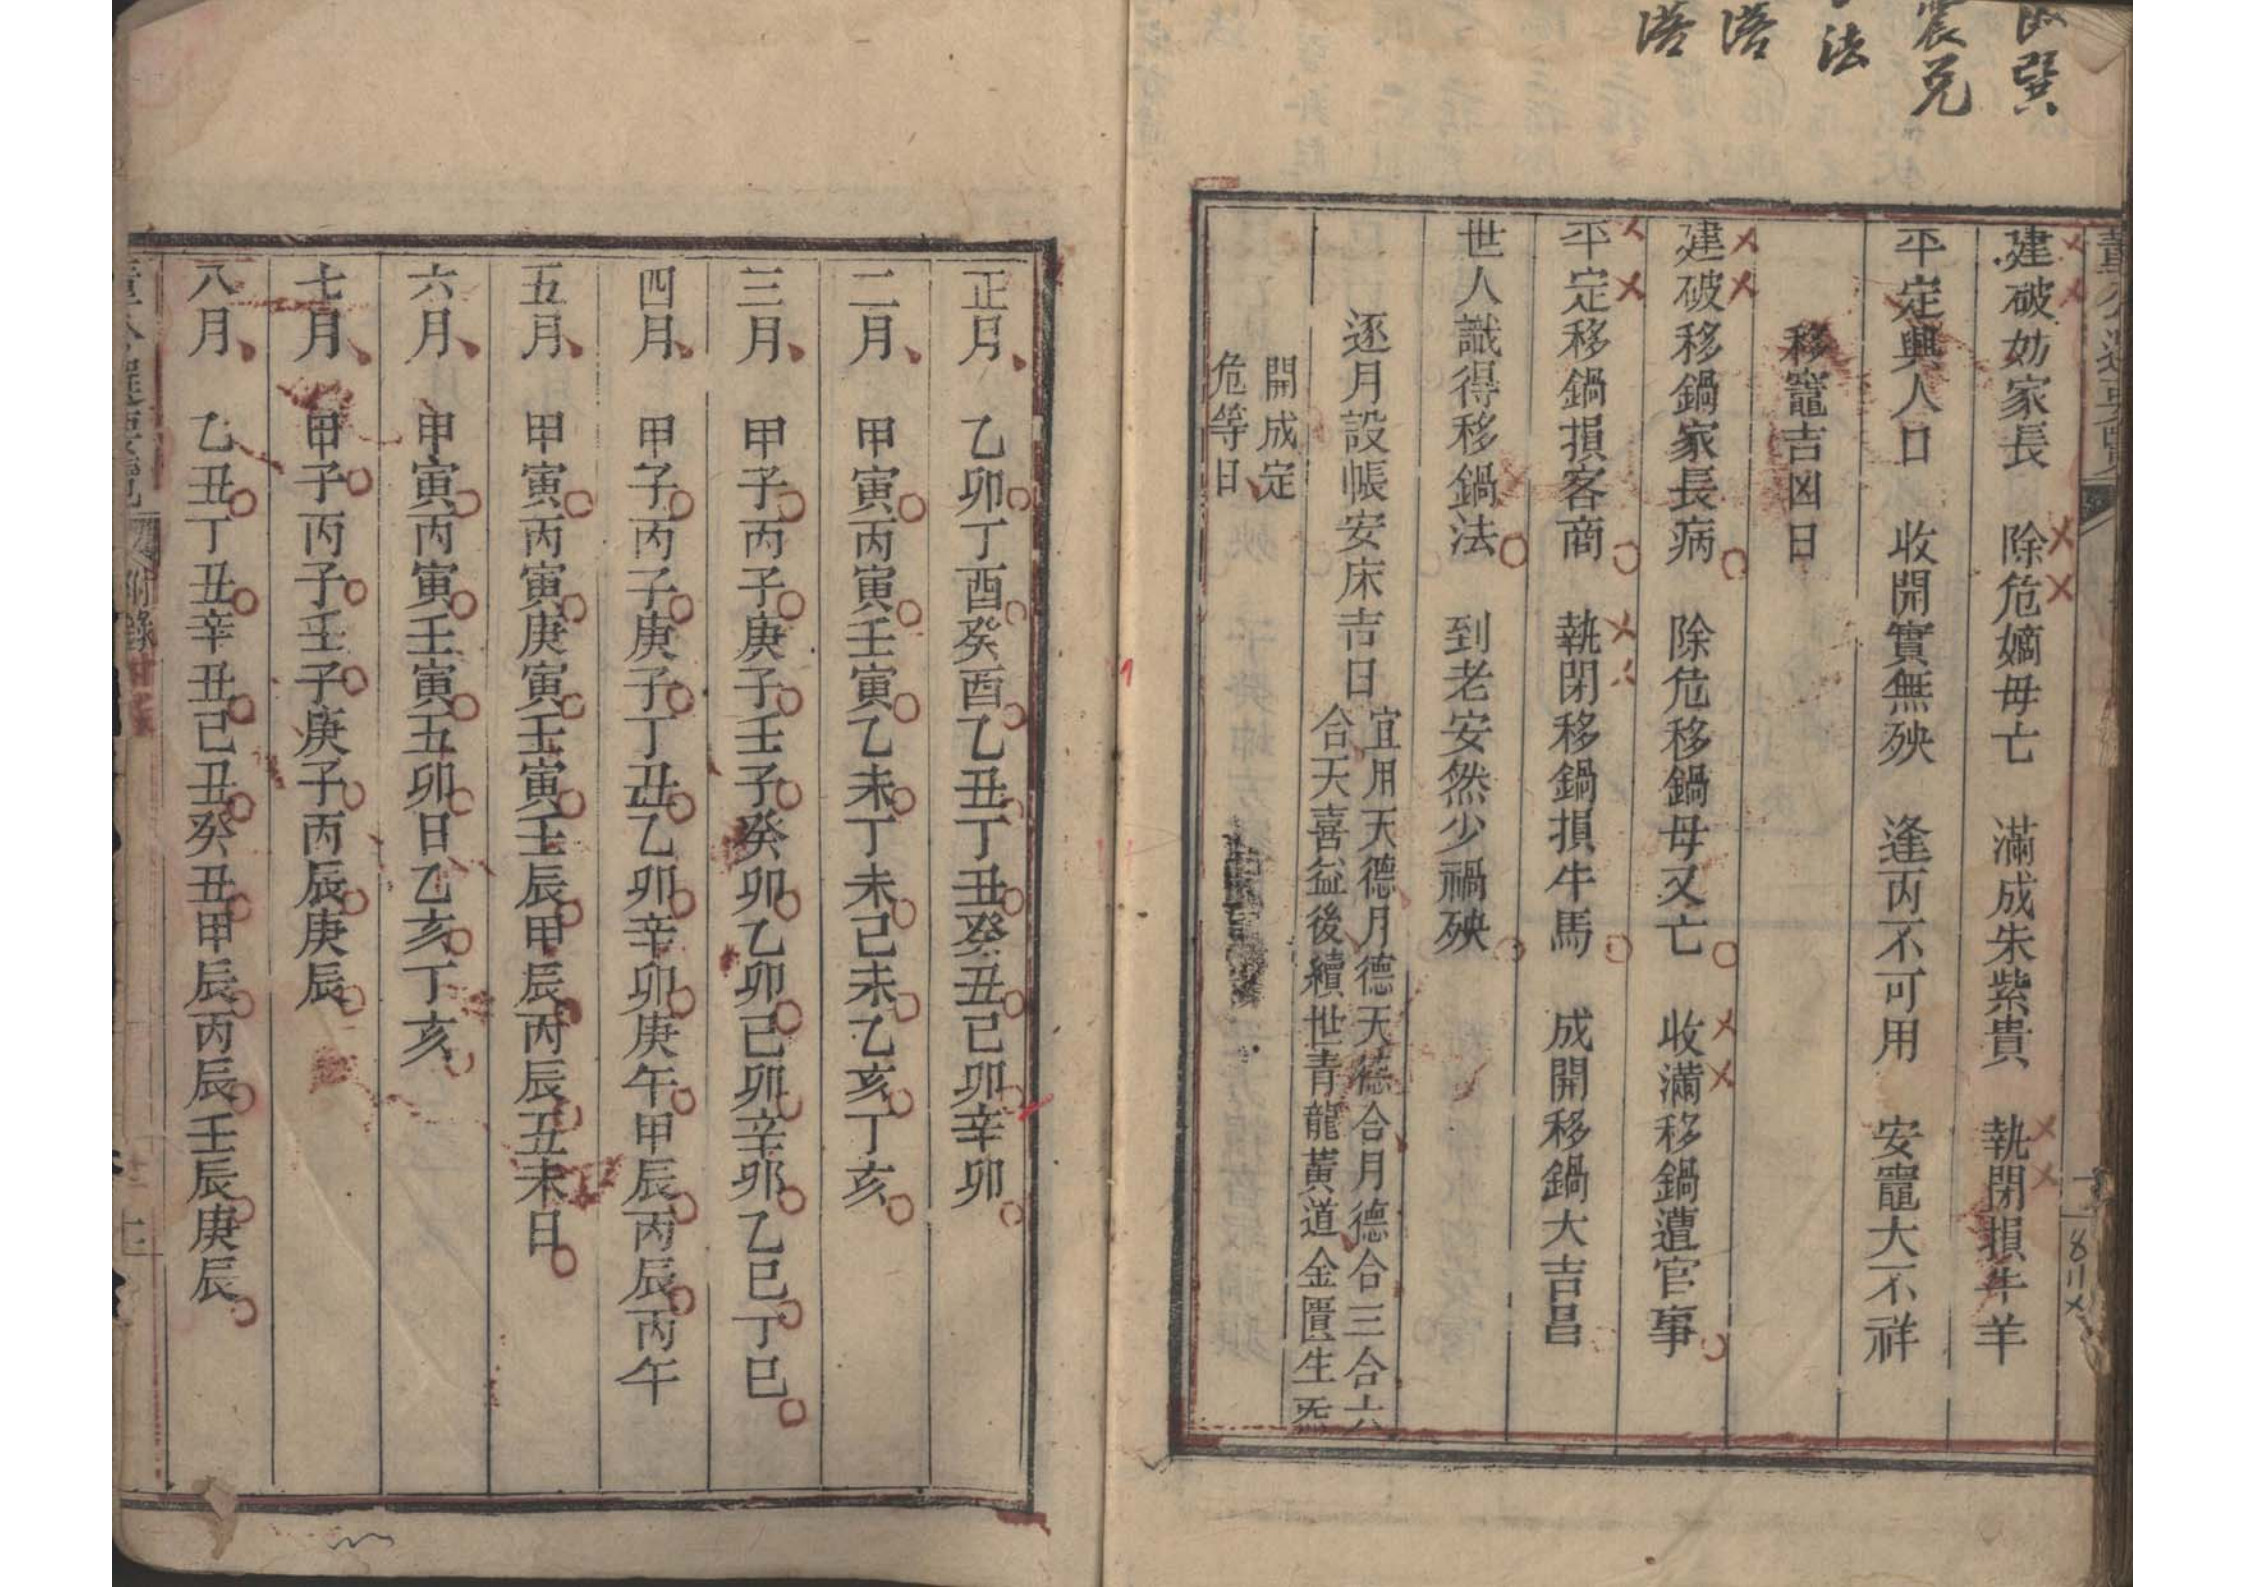 巽
震兌
法
董公選要覽
建破妨家長　除危嫡母亡　滿成朱紫貴　執閉損牛羊
平定興人口　收開實無殃　逢丙不可用　安竈大不祥
移竈吉凶日
建破移鍋家長病　除危移鍋母又亡　收滿移鍋遭官事
平定移鍋損客商　執閉移鍋損牛馬　成開移鍋大吉昌
世人識得移鍋法　到老安然少禍殃
逐月設帳安床吉日
宜用天德月德天德合月德合三合六
合天喜益後續世青龍黃道金匱生炁
開成定
危等日
正月　乙卯丁酉癸酉乙丑丁丑癸丑己卯辛卯
二月　甲寅丙寅壬寅乙未丁未己未乙亥丁亥
三月　甲子丙子庚子壬子癸卯乙卯己卯辛卯乙巳丁巳
四月　甲子丙子庚子丁丑乙卯辛卯庚午甲辰丙辰丙午
五月　甲寅丙寅庚寅壬寅壬辰甲辰丙辰丑未日
六月　甲寅丙寅壬寅五卯日乙亥丁亥
七月　甲子丙子壬子庚子丙辰庚辰
八月　乙丑丁丑辛丑己丑癸丑甲辰丙辰壬辰庚辰
董公選要覽　附錄